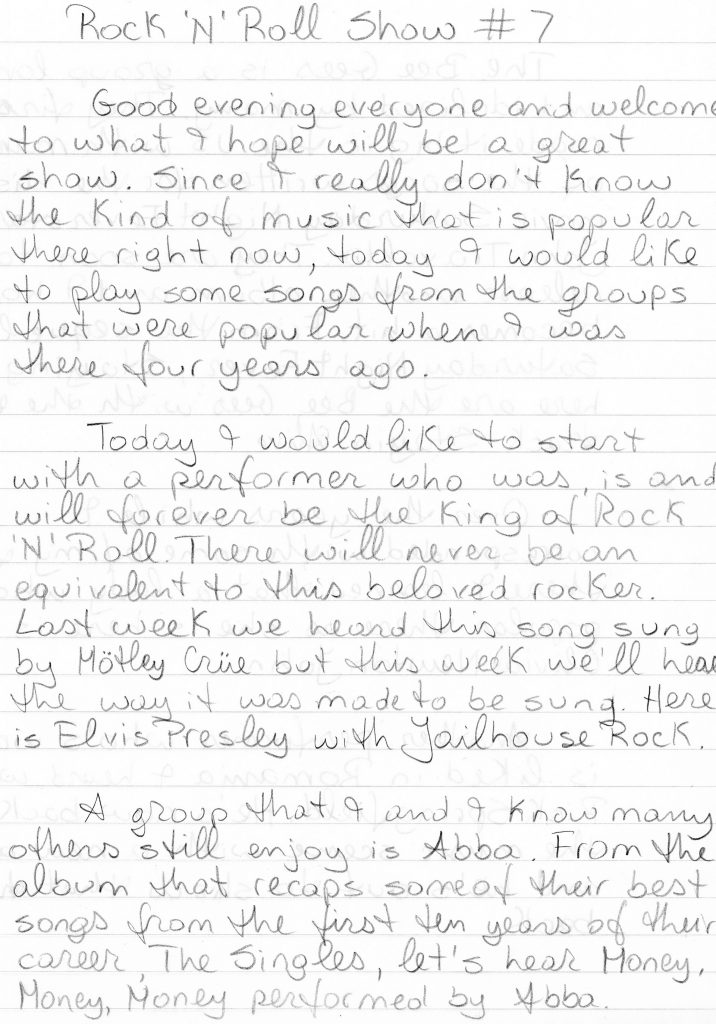 Rock 'N' Roll Show # 7
Good evening everyone and welcome
to what I hope will be a great
show. Since I really don't know
the kind of music that is popular
there right now, today I would like
to play some songs from the groups
that were popular when I was
there four years ago.
Today I would like to start
with a performer who was, is and
will forever be the King of Rock
'N' Roll. There will never be an
equivalent to this beloved rocker.
Last week we heard this song sung
by Mötley Crüe but this week we'll hear
the way it was made to be sung. Here
is Elvis Presley with Jailhouse Rock.
A group that I and I know many
others still enjoy is Abba. From the
album that recaps some of their best
songs from the first ten years of their
career, The Singles, let's hear Money,
Money, Money performed by Abba.